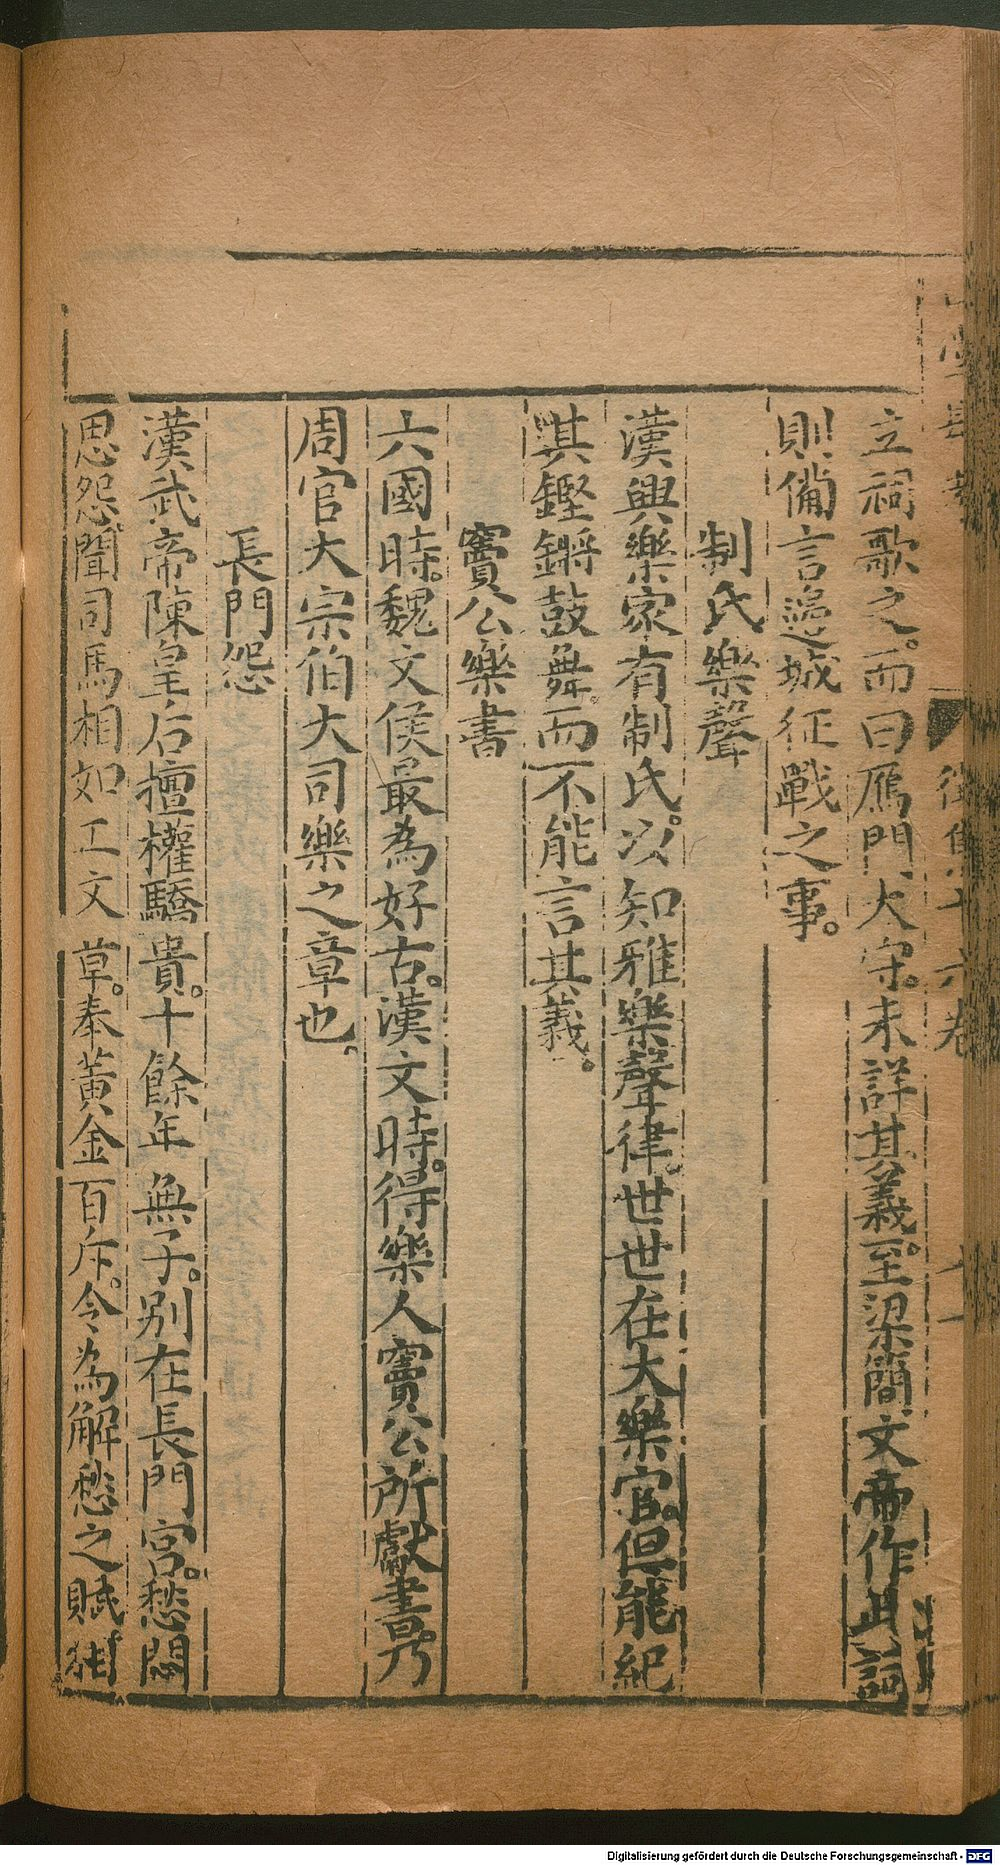 立祠歌之。而曰鴈門太守。未詳其義。至梁簡文帝作此詞
則備言邉城征戰之事。
制氏樂聲
漢興樂家有制氏。以知雅樂聲律。世世在大樂官。但能紀
其鏗鏘鼓舞。而不能言其義。
竇公樂書
六國時。魏文侯最為好古。漢文時。得樂人竇公所獻書。乃
周官大宗伯大司樂之章也。
長門怨
漢武帝陳皇后擅權驕貴。十餘年無子。別在長門宮。愁悶
思怨。聞司馬相如工文草。奉黃金百斤。令為解愁之賦。相
Digitalisierung gefördert durch die Deutsche Forschungsgemeinschaft - DFG